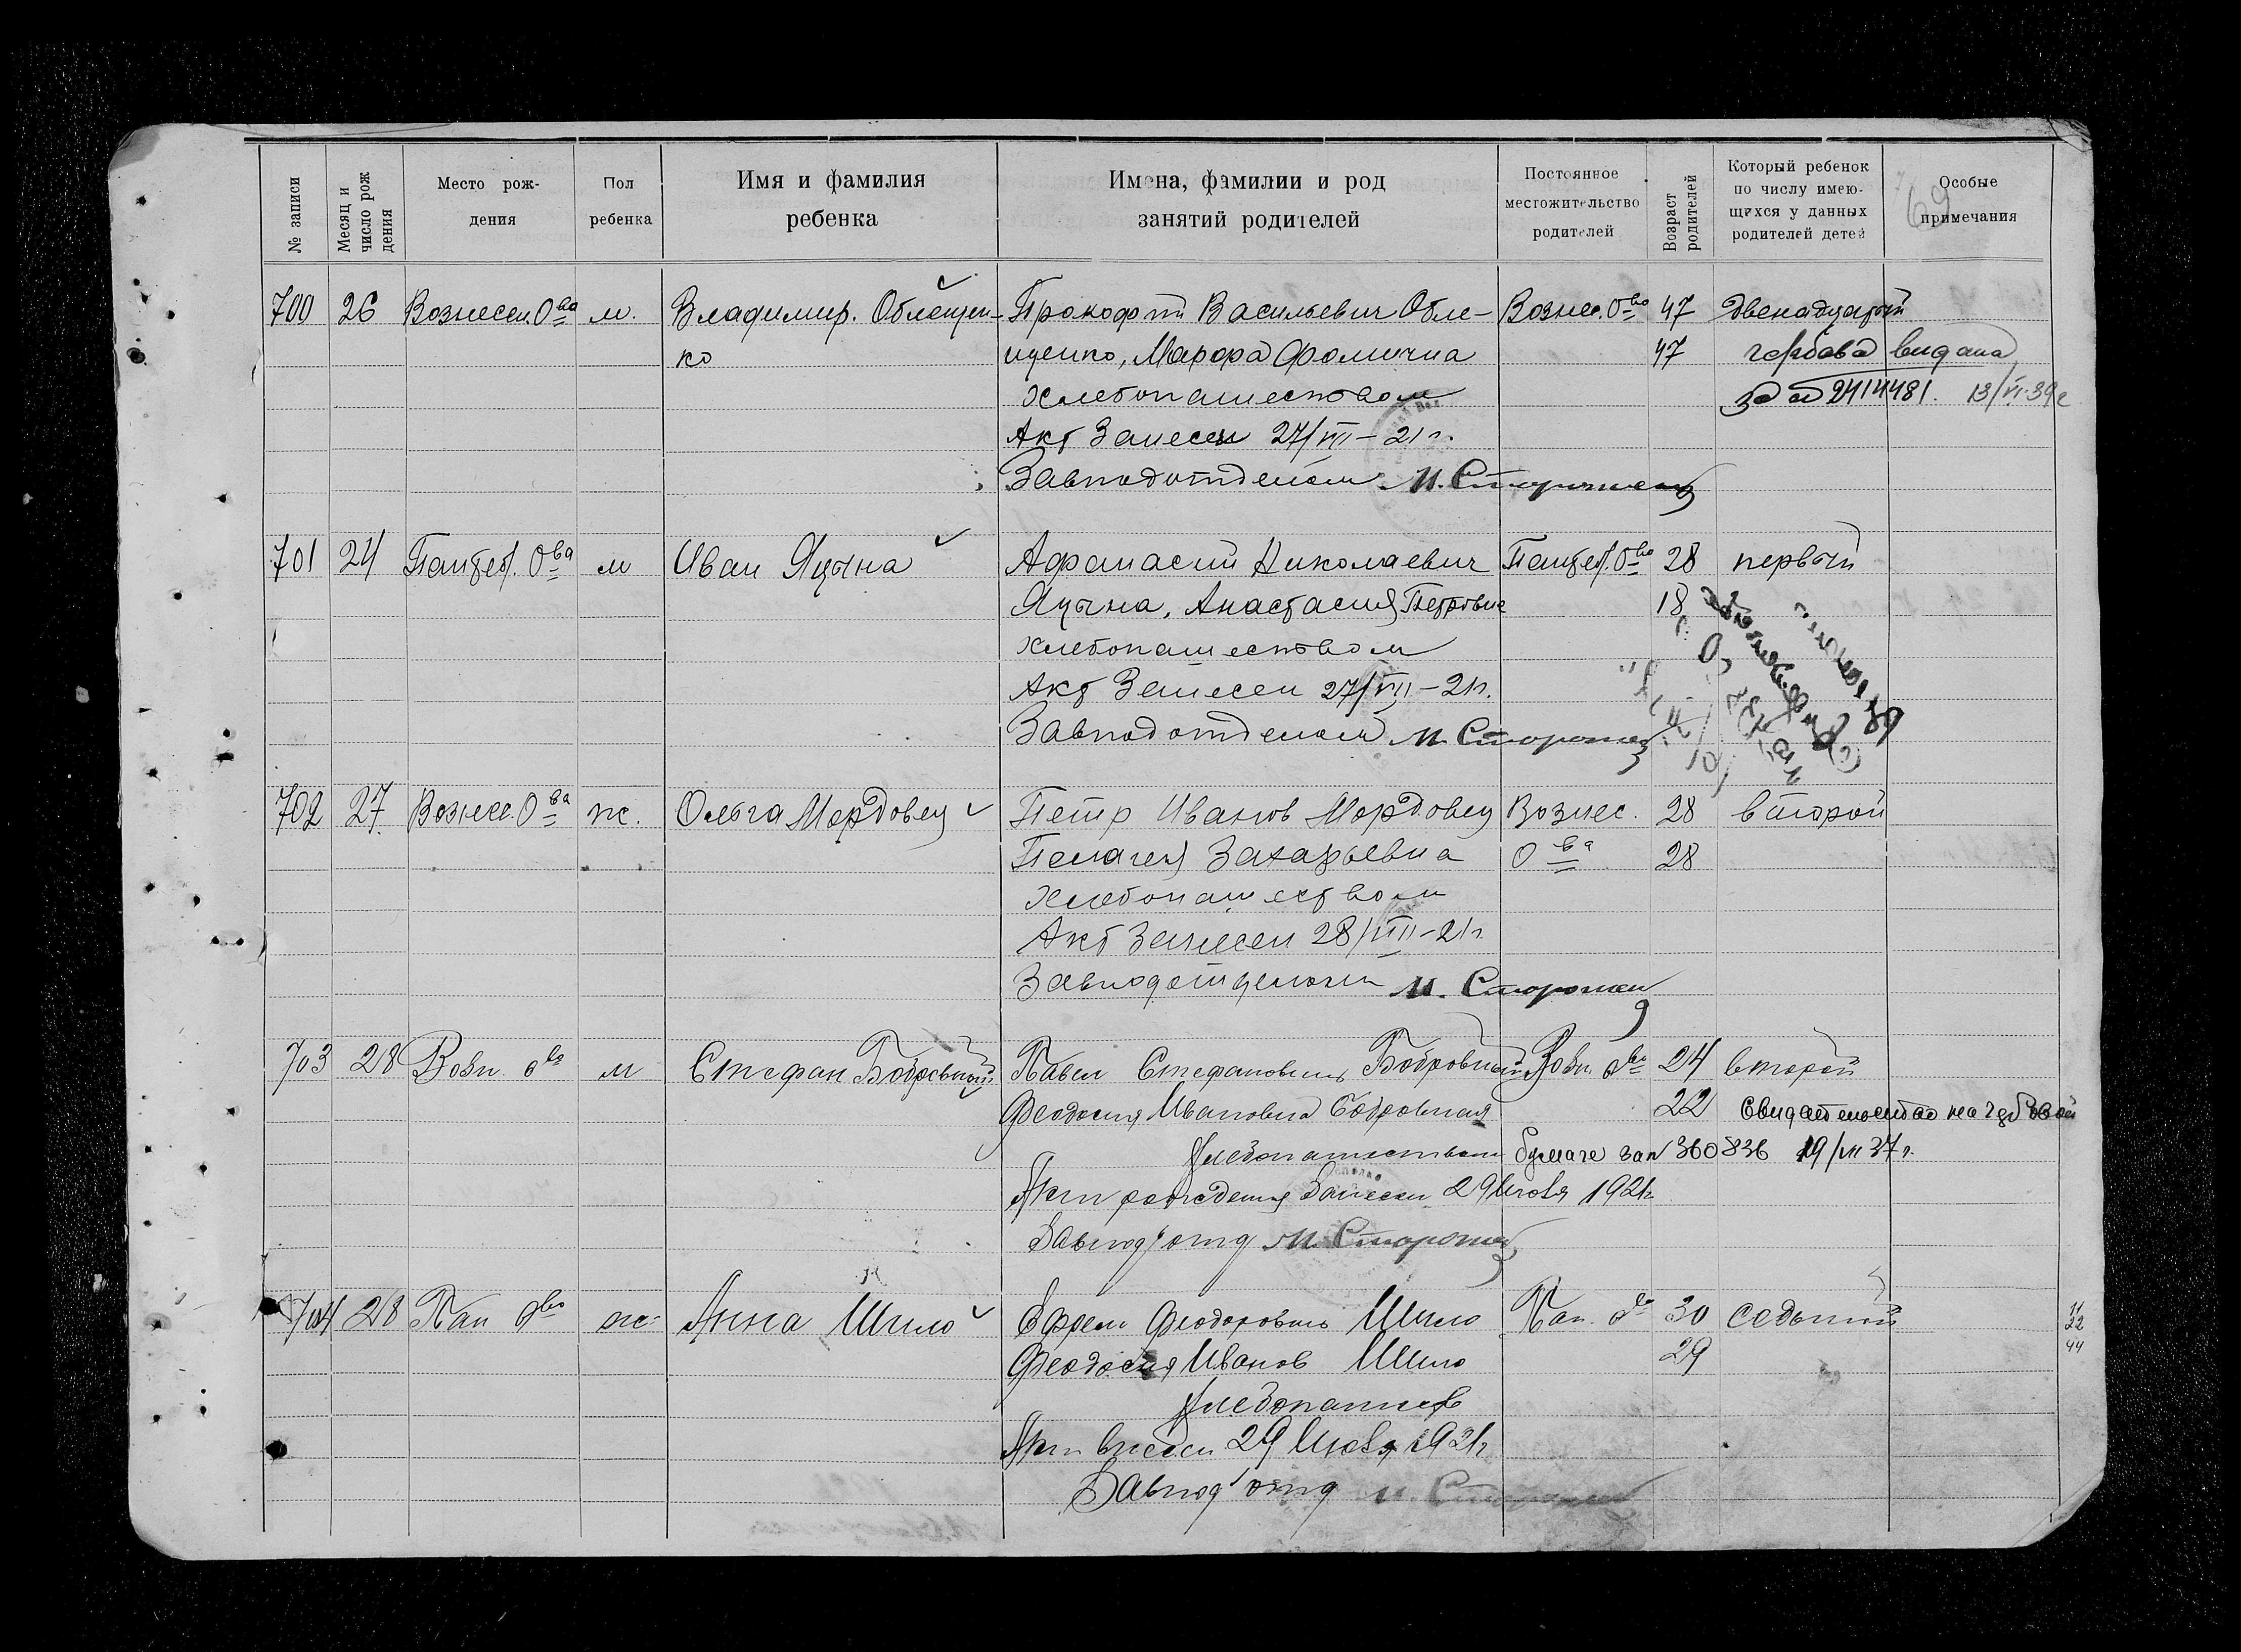 № записи
Месяц и число рождения
Место рож-
дения
Пол
ребенка
Имя и фамилия
ребенка
Имена, фамилии и род
занятий родителей
Постоянное
местожительство
родителей
Возраст
родителей
Который ребенок
по числу имею-
щихся у данных
родителей детей
Особые
примечания
69
700 26 Вознесен. О ва м. Владимир. Облещен- Прокофий Васильевич Обле- Вознес. О во 47 двенадцатый
ко щенко, Марфа Фомична 47 гербова видана
Хлебопашеством за № 2414481. 13/VI-39 г
Акт Занесен 27/VII-21 г.
Завподотделом М. Сторожен
701 24 Пантел. О ва м Иван Яцына Афанасий Николаевич Пантел. О во 28 первый
Яцына, Анастасия Петровна 18
хлебопашеством
Акт Занесен 27/VII-21 г.
Завподотделом М. Сторожен
702 27 Вознес. О ва ж. Ольга Мордовец Петр Иванов Мордовец Вознес. 28 второй
Пелагея Захарьевна О ва 28
Хлебопашеством
Акт Занесен 28/VII-21 г.
Завподотделом М. Сторожен
703 28 Возн. о во м Стефан Бобровный Павел Стефанович Бобровный Возн. о во 24 второй
Феодосия Ивановна Бобровная 22 Свидательство на гербовой
Хлебопашеством бумаге за № 360836 19/VII 37 г.
Акт рождения Занесен 29 Июля 1921 г.
Завпод/отд М. Сторожен
704 28 Пан о во ж Анна Шило Ефрем Феодорович Шило Пан. о во 30 седьмой
Феодосия Иванов Шило 29
Хлебопашеств
Акт внесен 29 Июля 1921 г.
Завпод/отд М. Сторожен
11
22
44